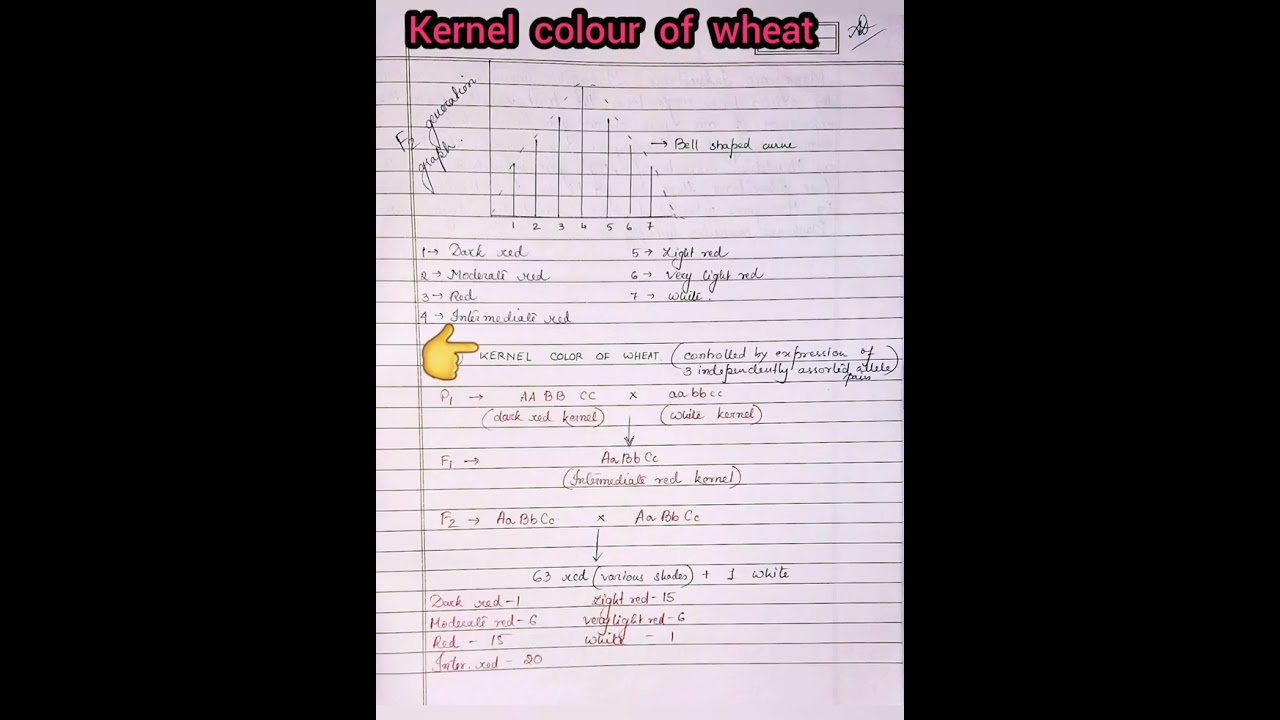 Kernel colour of wheat
F2 generation
graph.
→ Bell shaped curve
1 2 3 4 5 6 7
1→ Dark red 5→ Light red
2→ Moderate red 6→ Very light red
3→ Red 7→ White.
4→ Intermediate red
KERNEL COLOR OF WHEAT. (controlled by expression of
3 independently assorted allele
pair)
P1 → AA BB CC x aa bb cc
(dark red kernel) (white kernel)
F1 → AaBbCc
(Intermediate red kernel)
F2 → AaBbCc x AaBbCc
63 red (various shades) + 1 white
Dark red-1 Light red-15
Moderate red-6 very light red-6
Red - 15 white - 1
Inter. red - 20